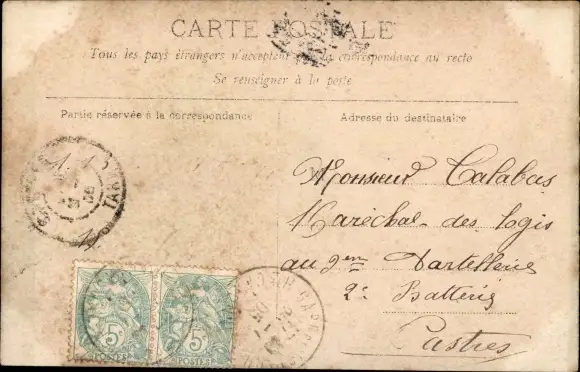 CARTE POSTALE
Tous les pays étrangers n'acceptent la correspondance au recto
Se renseigner à la poste
Partie réservée à la correspondance
Adresse du destinataire
Monsieur Calabas
Maréchal-des logis
au 9em d'artellerie
2e Batterie
Castres
TARN
5c 5c
POSTES POSTES